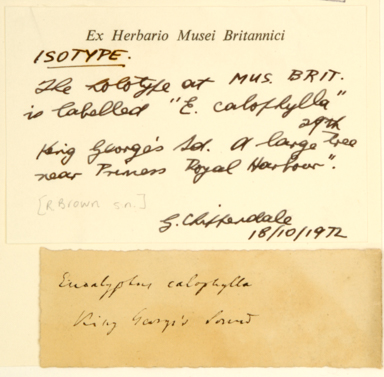 Ex Herbario Musei Britannici
ISOTYPE.
The holotype at MUS. BRIT.
is labelled "E. calophylla"
29th
King George's Sd. A large tree
near Princess Royal Harbour".
[R Brown s.n.]
G. Chippendale
18/10/1972
Eucalyptus calophylla
King George's Sound